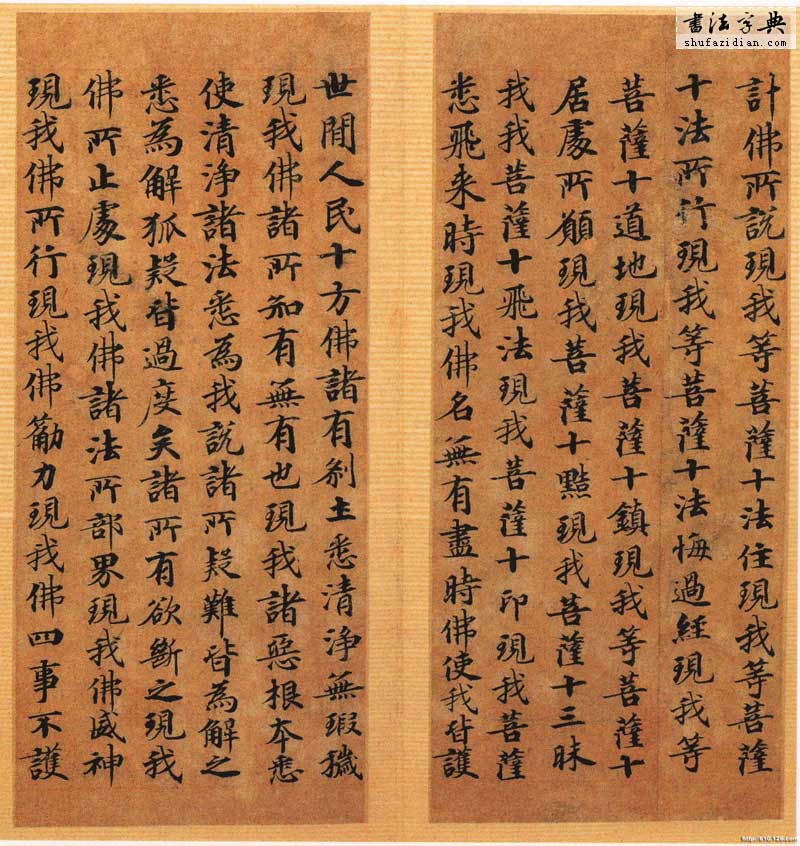 書法字典
shufazidian.com
計佛所說現我等菩薩十法住現我等菩薩
十法所行現我等菩薩十法悔過經現我等
菩薩十道地現我菩薩十鎮現我等菩薩十
居處所願現我菩薩十黠現我菩薩十三昧
我我菩薩十飛法現我菩薩十印現我菩薩
悉飛来時現我佛名無有盡時佛使我皆護
世間人民十方佛諸有剎土悉清淨無瑕穢
現我佛諸所知有無有也現我諸惡根本悉
使清淨諸法悉為我說諸所疑難皆為解之
悉為解狐疑皆過度矣諸所有欲斷之現我
佛所止處現我佛諸法所部界現我佛威神
現我佛所行現我佛勸力現我佛四事不護